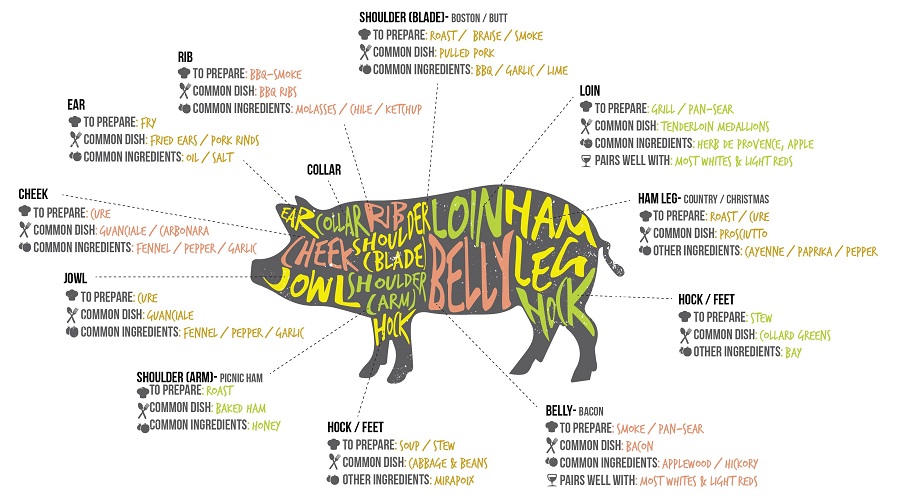 SHOULDER (BLADE)- BOSTON / BUTT
TO PREPARE: ROAST / BRAISE / SMOKE
COMMON DISH: PULLED PORK
COMMON INGREDIENTS: BBQ / GARLIC / LIME
RIB
TO PREPARE: BBQ-SMOKE
COMMON DISH: BBQ RIBS
COMMON INGREDIENTS: MOLASSES / CHILE / KETCHUP
LOIN
TO PREPARE: GRILL / PAN-SEAR
COMMON DISH: TENDERLOIN MEDALLIONS
COMMON INGREDIENTS: HERB DE PROVENCE, APPLE
PAIRS WELL WITH: MOST WHITES & LIGHT REDS
EAR
TO PREPARE: FRY
COMMON DISH: FRIED EARS / PORK RINDS
COMMON INGREDIENTS: OIL / SALT
COLLAR
CHEEK
TO PREPARE: CURE
COMMON DISH: GUANCIALE / CARBONARA
COMMON INGREDIENTS: FENNEL / PEPPER / GARLIC
HAM LEG- COUNTRY / CHRISTMAS
TO PREPARE: ROAST / CURE
COMMON DISH: PROSCIUTTO
OTHER INGREDIENTS: CAYENNE / PAPRIKA / PEPPER
EAR
COLLAR
RIB
SHOULDER
(BLADE)
LOIN
HAM
LEG
CHEEK
JOWL
SHOULDER
(ARM)
BELLY
HOCK
HOCK
JOWL
TO PREPARE: CURE
COMMON DISH: GUANCIALE
COMMON INGREDIENTS: FENNEL / PEPPER / GARLIC
HOCK / FEET
TO PREPARE: STEW
COMMON DISH: COLLARD GREENS
OTHER INGREDIENTS: BAY
SHOULDER (ARM)- PICNIC HAM
TO PREPARE: ROAST
COMMON DISH: BAKED HAM
COMMON INGREDIENTS: HONEY
HOCK / FEET
TO PREPARE: SOUP / STEW
COMMON DISH: CABBAGE & BEANS
OTHER INGREDIENTS: MIRAPOIX
BELLY- BACON
TO PREPARE: SMOKE / PAN-SEAR
COMMON DISH: BACON
COMMON INGREDIENTS: APPLEWOOD / HICKORY
PAIRS WELL WITH: MOST WHITES & LIGHT REDS